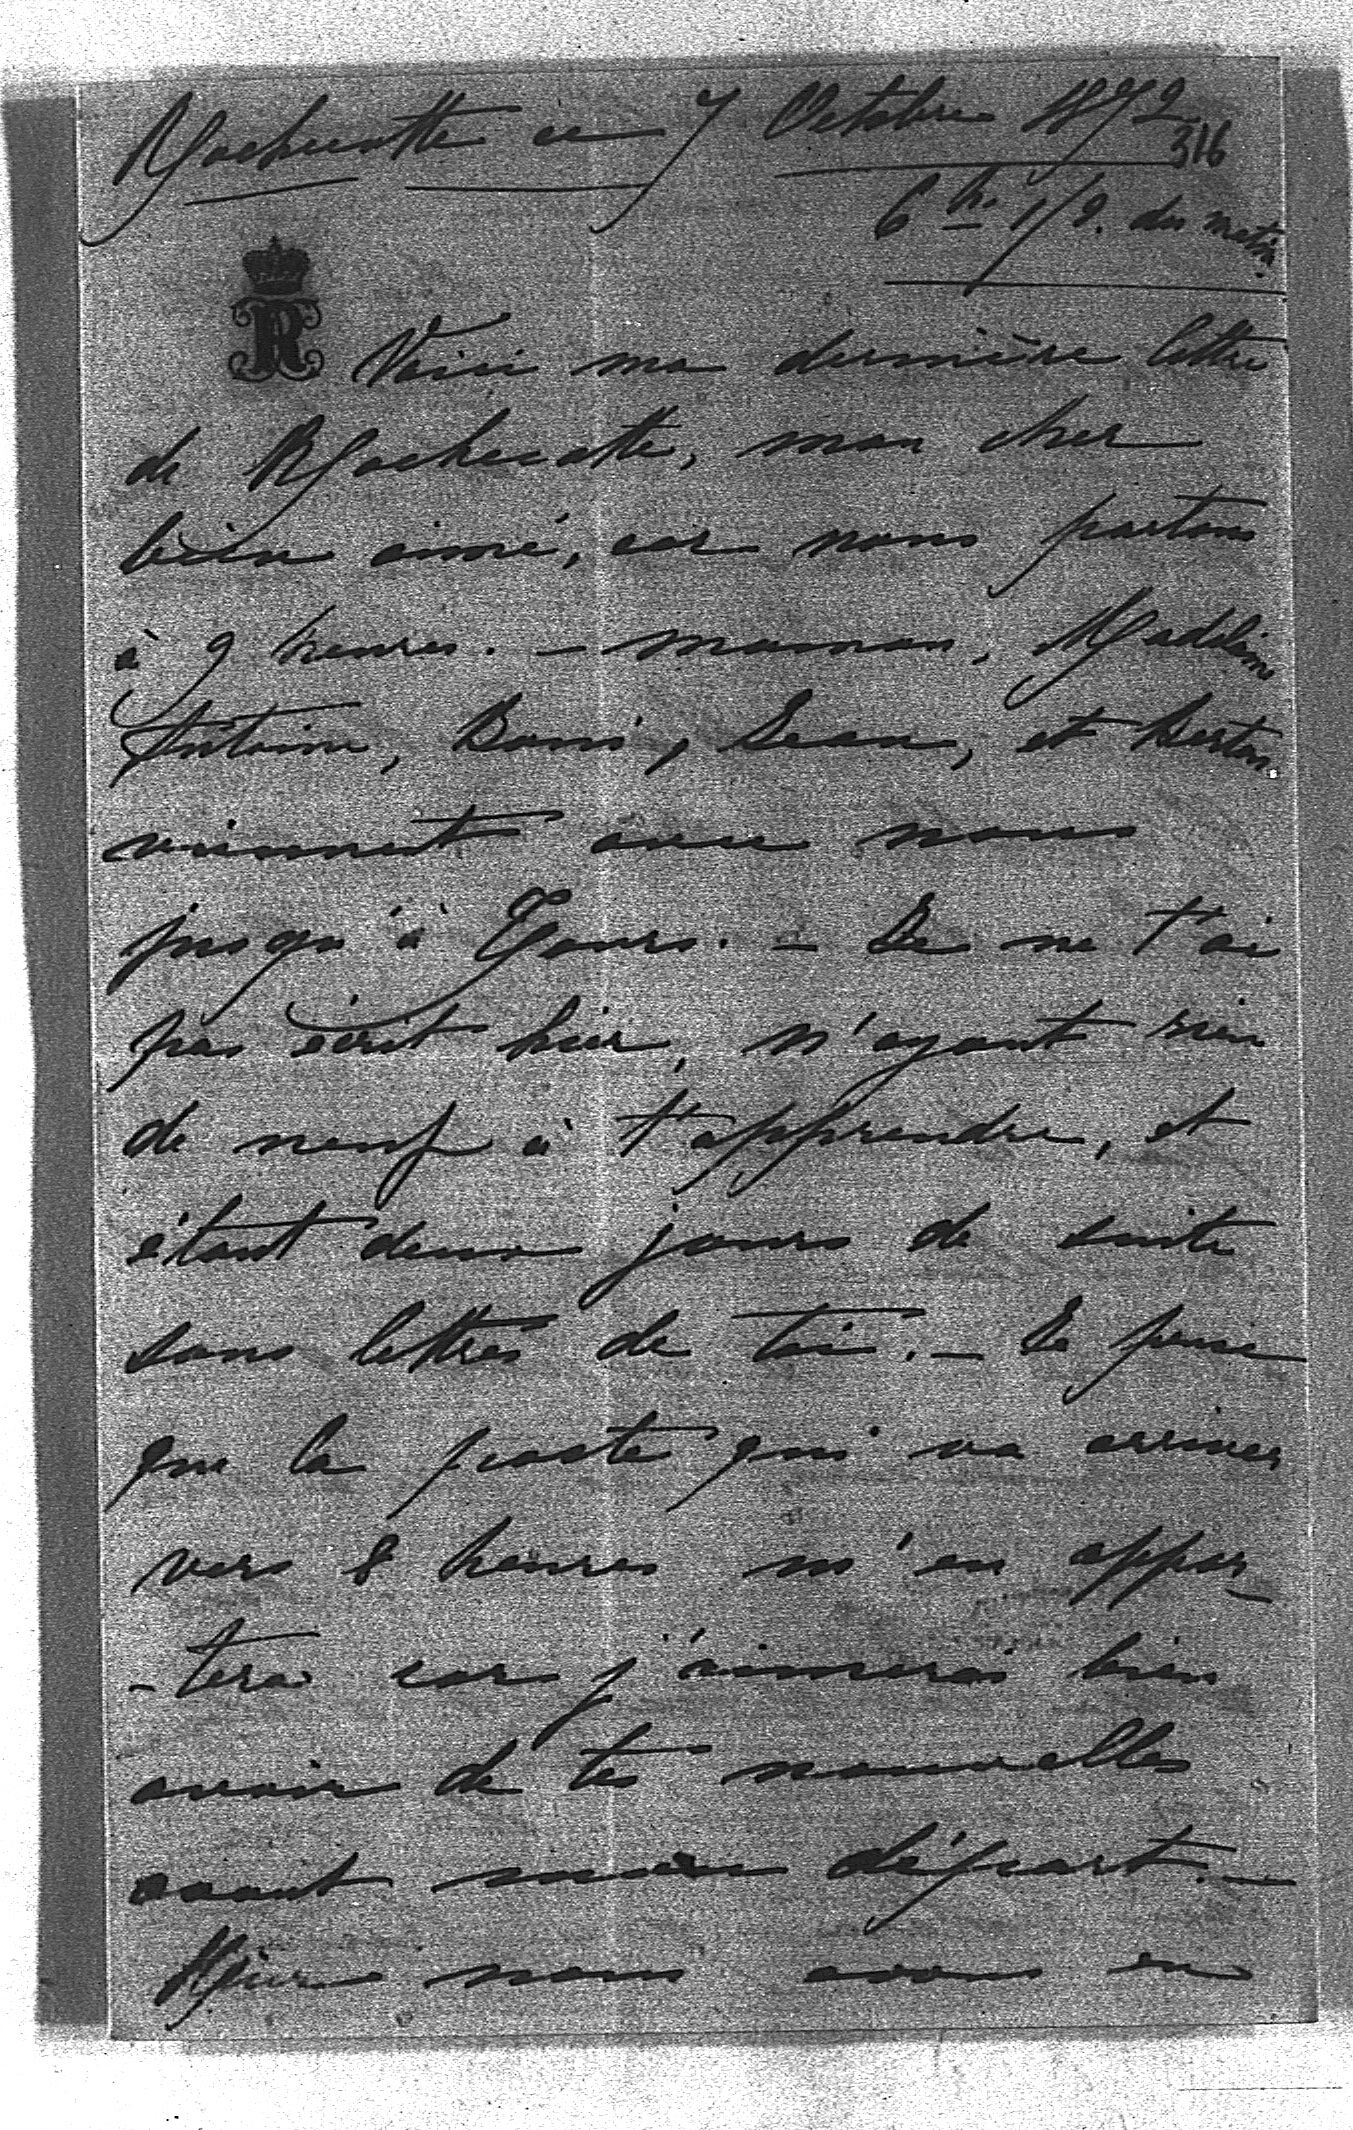 Rochecotte ce 7 Octobre 1872
316
6 h. 1/2. du matin.
R
Voici ma dernière lettre
de Rochecotte, mon cher
bien aimé, car nous partons
à 9 heures. – maman, Madeleine
Antoine, Boni, Jean, et
viennent avec nous
jusqu'à Tours. – Je ne t'ai
pas écrit hier, n'ayant rien
de neuf à t'apprendre, et
étant deux jours de suite
sans lettres de toi. – Je
que la poste qui va arriver
vers 8 heures m'en appor-
-tera car j'aimerais bien
avoir de tes nouvelles
avant départ. –
Hier nous avons eu